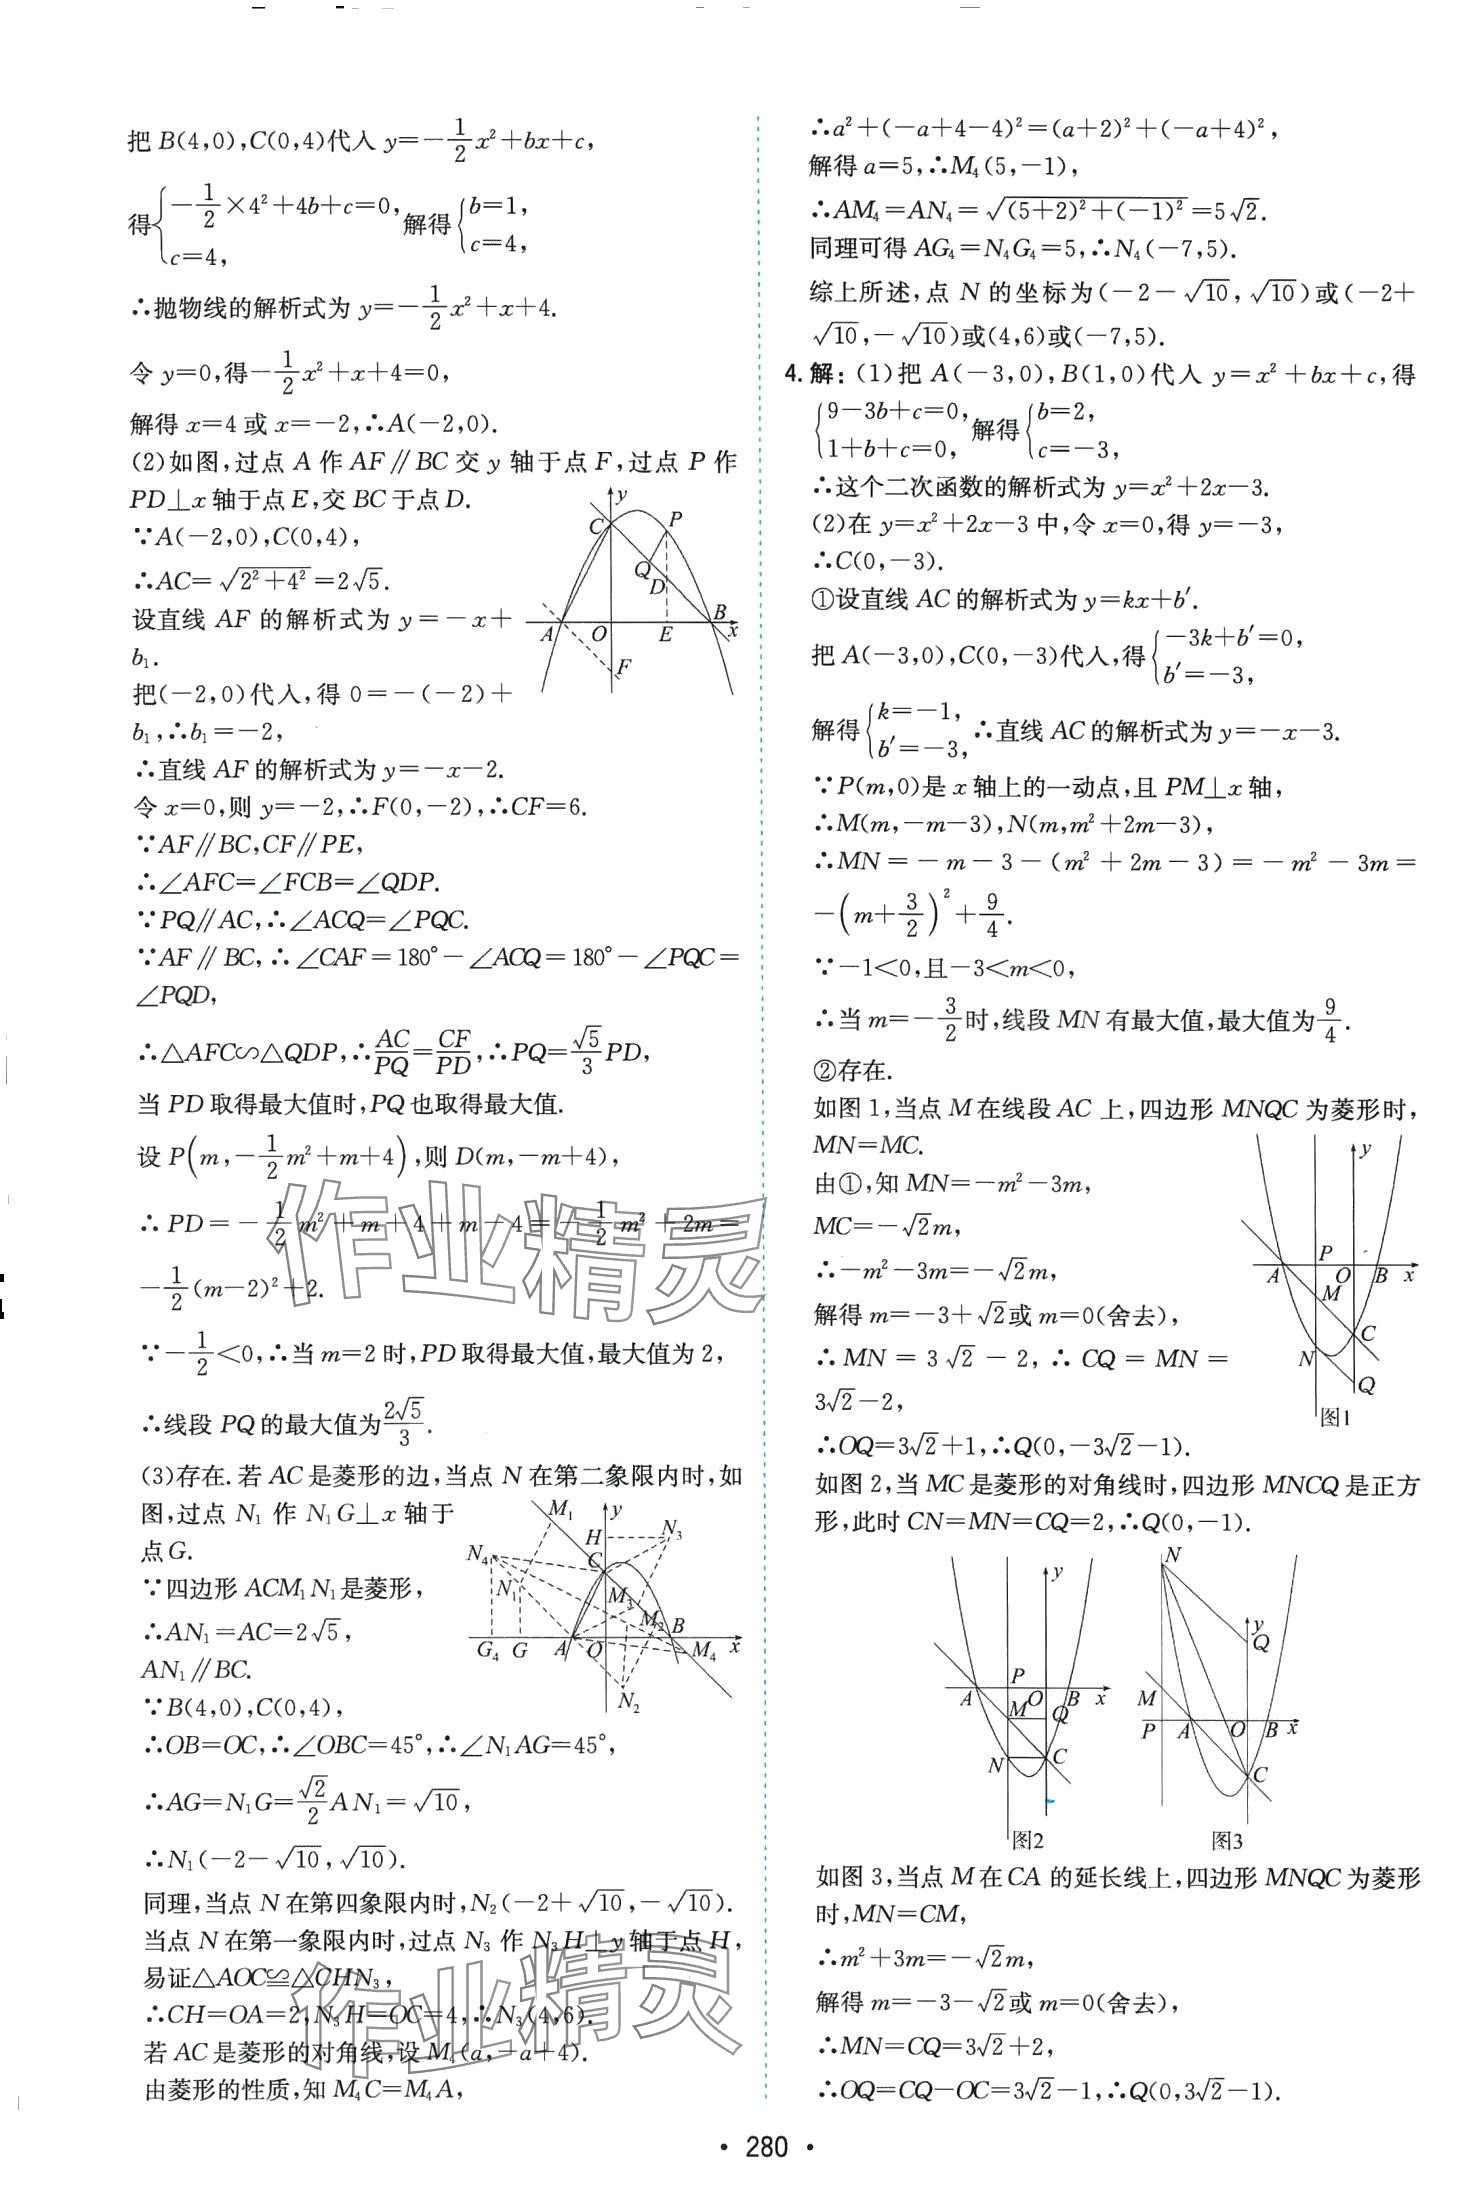 把 B(4,0),C(0,4)代入 y=-\frac{1}{2}x²+bx+c,
得{-\frac{1}{2}×4²+4b+c=0, c=4, 解得{b=1, c=4,
∴抛物线的解析式为 y=-\frac{1}{2}x²+x+4.
令 y=0,得-\frac{1}{2}x²+x+4=0,
解得 x=4 或 x=-2,∴A(-2,0).
(2)如图,过点 A 作 AF∥BC 交 y 轴于点 F,过点 P 作
PD⊥x 轴于点 E,交 BC 于点 D.
∵A(-2,0),C(0,4),
∴AC=√(2²+4²)=2√5.
设直线 AF 的解析式为 y=-x+
b₁.
把(-2,0)代入,得 0=-(-2)+
b₁,∴b₁=-2,
y
C
P
Q
D
A
O
E
B
x
F
∴直线 AF 的解析式为 y=-x-2.
令 x=0,则 y=-2,∴F(0,-2),∴CF=6.
∵AF∥BC,CF∥PE,
∴∠AFC=∠FCB=∠QDP.
∵PQ∥AC,∴∠ACQ=∠PQC.
∵AF∥BC,∴∠CAF=180°-∠ACQ=180°-∠PQC=
∠PQD,
∴△AFC∽△QDP,∴\frac{AC}{PQ}=\frac{CF}{PD},∴PQ=\frac{√5}{3}PD,
当 PD 取得最大值时,PQ 也取得最大值.
设 P(m,-\frac{1}{2}m²+m+4),则 D(m,-m+4),
∴PD=-\frac{1}{2}m²+m+4+m-4=-\frac{1}{2}m²+2m=
-\frac{1}{2}(m-2)²+2.
∵-\frac{1}{2}<0,∴当 m=2 时,PD 取得最大值,最大值为 2,
∴线段 PQ 的最大值为\frac{2√5}{3}.
(3)存在.若 AC 是菱形的边,当点 N 在第二象限内时,如
图,过点 N₁ 作 N₁G⊥x 轴于
点 G.
∵四边形 ACM₁N₁ 是菱形,
∴AN₁=AC=2√5,
AN₁∥BC.
M₁
y
H
N₃
N₄
C
N₁
M₃
M₂
B
G₄
G
A
O
M₄
x
N₂
∵B(4,0),C(0,4),
∴OB=OC,∴∠OBC=45°,∴∠N₁AG=45°,
∴AG=N₁G=\frac{√2}{2}AN₁=√10,
∴N₁(-2-√10,√10).
同理,当点 N 在第四象限内时,N₂(-2+√10,-√10).
当点 N 在第一象限内时,过点 N₃ 作 N₃H⊥y 轴于点 H,
易证△AOC≌△CHN₃,
∴CH=OA=2,N₃H=OC=4,∴N₃(4,6).
若 AC 是菱形的对角线,设 M₄(a,-a+4).
由菱形的性质,知 M₄C=M₄A,
∴a²+(-a+4-4)²=(a+2)²+(-a+4)²,
解得 a=5,∴M₄(5,-1),
∴AM₄=AN₄=√((5+2)²+(-1)²)=5√2.
同理可得 AG₄=N₄G₄=5,∴N₄(-7,5).
综上所述,点 N 的坐标为(-2-√10,√10)或(-2+
√10,-√10)或(4,6)或(-7,5).
4.解:(1)把 A(-3,0),B(1,0)代入 y=x²+bx+c,得
{9-3b+c=0, 1+b+c=0, 解得{b=2, c=-3,
∴这个二次函数的解析式为 y=x²+2x-3.
(2)在 y=x²+2x-3 中,令 x=0,得 y=-3,
∴C(0,-3).
①设直线 AC 的解析式为 y=kx+b′.
把 A(-3,0),C(0,-3)代入,得{-3k+b′=0, b′=-3,
解得{k=-1, b′=-3, ∴直线 AC 的解析式为 y=-x-3.
∵P(m,0)是 x 轴上的一动点,且 PM⊥x 轴,
∴M(m,-m-3),N(m,m²+2m-3),
∴MN=-m-3-(m²+2m-3)=-m²-3m=
-(m+\frac{3}{2})²+\frac{9}{4}.
∵-1<0,且-3<m<0,
∴当 m=-\frac{3}{2}时,线段 MN 有最大值,最大值为\frac{9}{4}.
②存在.
如图 1,当点 M 在线段 AC 上,四边形 MNQC 为菱形时,
MN=MC.
由①,知 MN=-m²-3m,
MC=-√2m,
∴-m²-3m=-√2m,
解得 m=-3+√2或 m=0(舍去),
∴MN=3√2-2,∴CQ=MN=
3√2-2,
y
P
A
O
B
x
M
C
N
Q
图1
∴OQ=3√2+1,∴Q(0,-3√2-1).
如图 2,当 MC 是菱形的对角线时,四边形 MNCQ 是正方
形,此时 CN=MN=CQ=2,∴Q(0,-1).
y
P
A
O
B
x
M
Q
N
C
图2
N
y
Q
M
P
A
O
B
x
C
图3
如图 3,当点 M 在 CA 的延长线上,四边形 MNQC 为菱形
时,MN=CM,
∴m²+3m=-√2m,
解得 m=-3-√2或 m=0(舍去),
∴MN=CQ=3√2+2,
∴OQ=CQ-OC=3√2-1,∴Q(0,3√2-1).
作业精灵
作业精灵
• 280 •